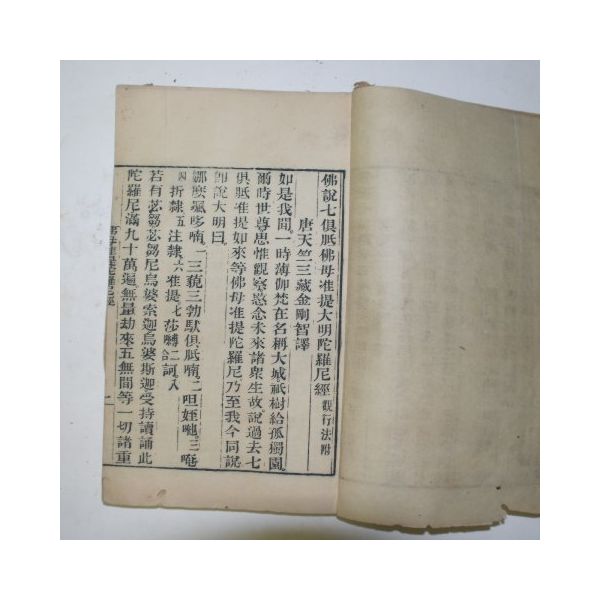 佛說七俱胝佛母准提大明陀羅尼經 觀行法附
唐天竺三藏金剛智譯
如是我聞一時薄伽梵在名稱大城祇樹給孤獨園
爾時世尊思惟觀察愍念未來諸衆生故說過去七
俱胝准提如來等佛母准提陀羅尼乃至我今同說
即說大明曰
娜麼颯哆喃一三藐三勃馱俱胝喃二怛姪咃三唵
四折隸五注隸六准提七莎嚩二合訶八
若有苾芻苾芻尼烏婆索迦烏婆斯迦受持讀誦此
陀羅尼滿九十萬遍無量劫來五無間等一切諸重